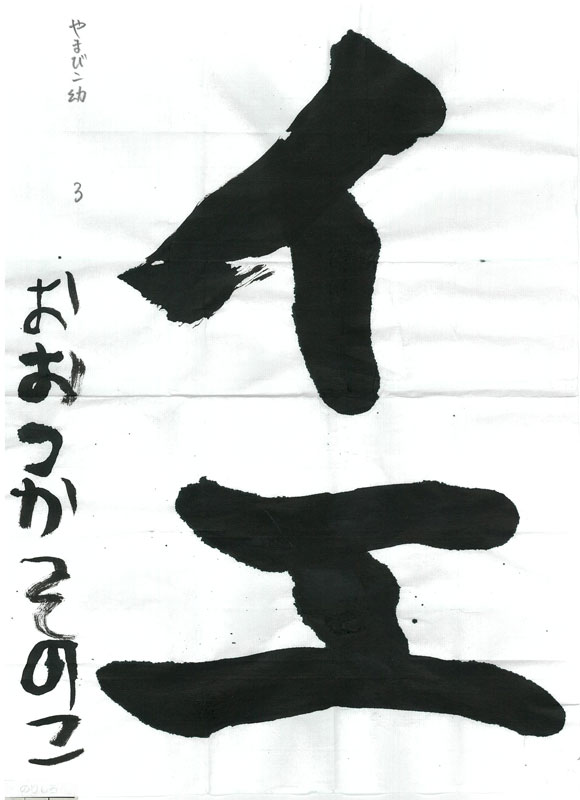 イエ
やまびこ幼
3
おおつかそのこ